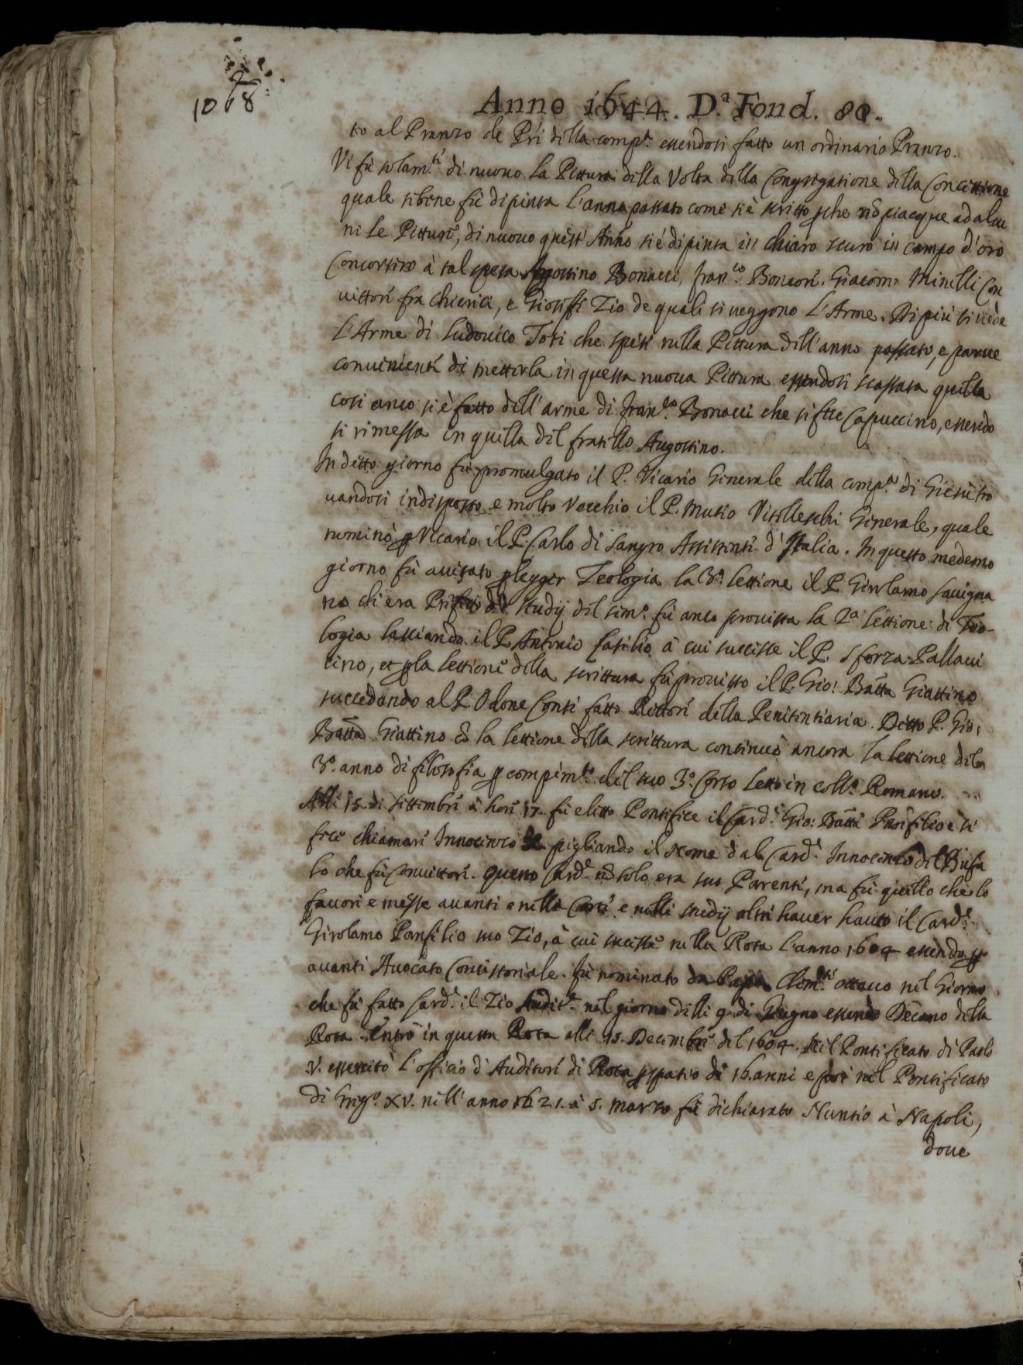 1068
Anno 1644. D.ª Fond. 80.
to al Pranzo de Pri della comp.ª essendosi fatto un ordinario Pranzo.
Vi fù solam.te di nuovo la Pittura della Volta della Congregatione della Concettione
quale sibene fù dipinta l'anno passato come si è scritto perche nõ piacque ad alcu
ni le Pitture, di nuovo quest'Anno si è dipinta in chiaro scuro in campo d'oro
Concorsero à tal spesa Agostino Bonacci, Fran.co Bonacori, Giacomo Minelli Con
vittori fra Chierici, e Gioseffi Zio de quali si veggono l'Arme. Di più si vede
l'Arme di Ludovico Tosi che spese nella Pittura dell'anno passato, e parve
conveniente di metterla in questa nuova Pittura essendosi scassata quella
cosi anco si è fatto dell'arme di Fran.co Bonacci che si fece Capuccino, essendo
si rimessa in quella del fratello Augostino.
In detto giorno fù promulgato il P. Vicario Generale della comp.ª di Giesù tro
vandosi indisposto e molto vecchio il P. Mutio Vitelleschi Generale, quale
nominò p Vicario il P. Carlo di Sangro Assistente d'Italia. In questo medemo
giorno fù avisato p legger Teologia la 3ª lettione il P. Girolamo Savigna
no ch'era Prefetto de Studij del Sem.º fù anco provista la 2ª lettione di Teo-
logia lasciando il P. Antonio Casilio à cui successe il P. Sforza Pallavi
cino, et p la lettione della scrittura fù provisto il P. Gio: Batta Giattino
succedendo al P. Odone Conti fatto Rettore della Penitentiaria. Detto P. Gio:
Batta Giattino cõ la lettione della scrittura continuò ancora la lettione del
3º. anno di filosofia p compim.to del suo 3º. Corso letto in coll.º Romano.
Alli 15. di Settembre à hore 17. fù eletto Pontefice il Card.e Gio: Batta Panfilio e si
fece chiamare Innocenzo pigliando il Nome dal Card.e Innocenzo del Bufa
lo che fù Convittore. Questo Card.e nõ solo era suo Parente, ma fù quello che lo
favorì e messe avanti e nella Corte e nelli studij oltre haver havuto il Card.e
Girolamo Panfilio suo Zio, à cui successe nella Rota l'anno 1604 essendo p
avanti Avocato Concistoriale. fù nominato da Papa Clem.te ottavo nel Giorno
che fù fatto Card.e il Zio Audit.e nel giorno delli 9. di Giugno essendo Decano della
Rota. Entrò in questa Rota alli 15. Decembre del 1604. Nel Pontificato di Paolo
V. essercitò l'officio d'Auditore di Rota p spatio di 16. anni e poi nel Pontificato
di Greg.º XV. nell'anno 1621. à 5. marzo fù dichiarato Nuntio à Napoli,
dove